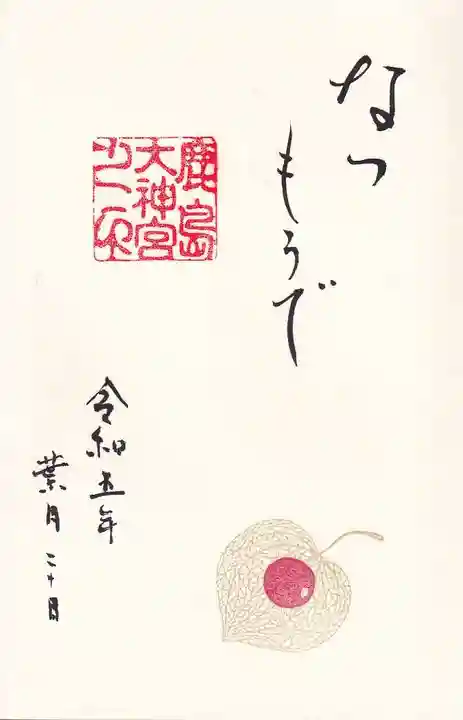 なつ
もうで
鹿島
大神宮
之印
令和五年
葉月二十日